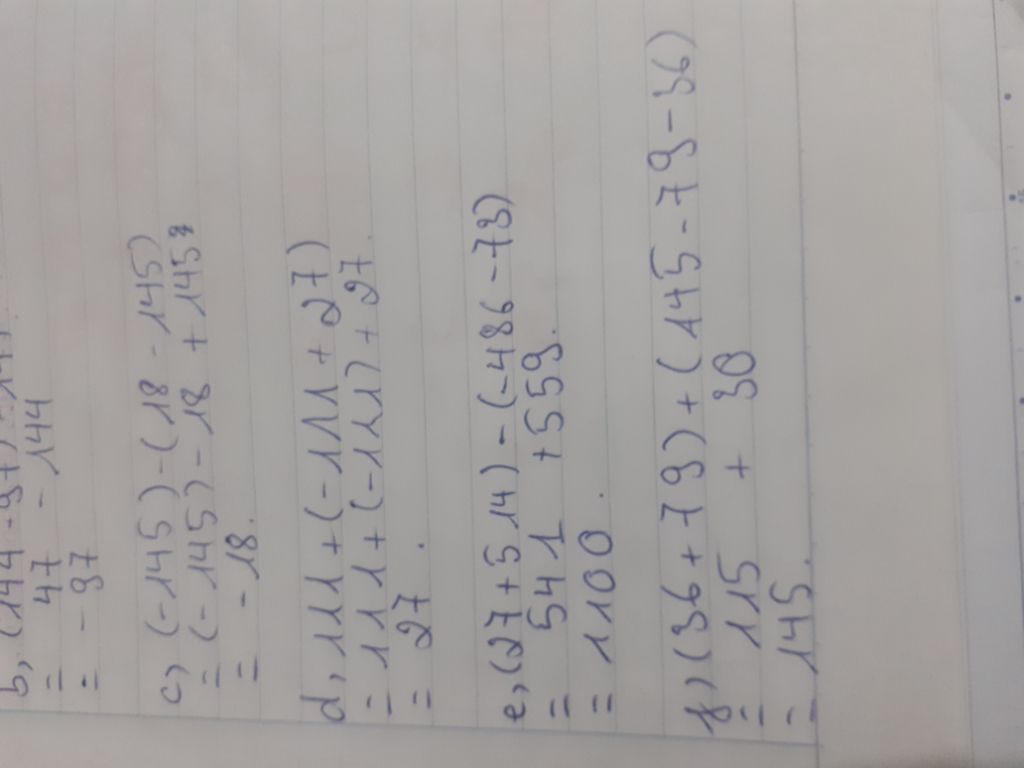 b, (144 - 97) - 144
= 47 - 144
= - 97
c, (-145) - (18 - 145)
= (-145) - 18 + 145
= - 18.
d, 111 + (-111 + 27)
= 111 + (-111) + 27.
= 27.
e, (27 + 514) - (-486 - 73)
= 541 + 559.
= 1100.
f, (36 + 79) + (145 - 79 - 36)
= 115 + 30
= 145.